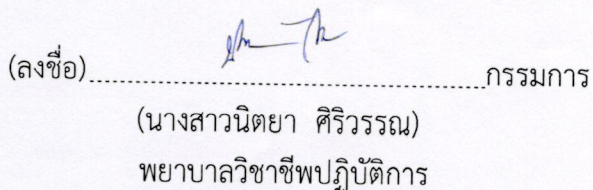 (ลงชื่อ)................................................กรรมการ
(นางสาวนิตยา ศิริวรรณ)
พยาบาลวิชาชีพปฏิบัติการ